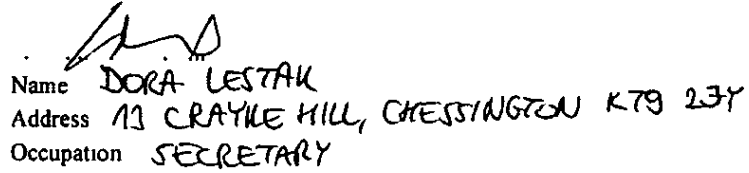 Name DORA LESTAK
Address 13 CRAYKE HILL, CHESSINGTON KT9
Occupation SECRETARY